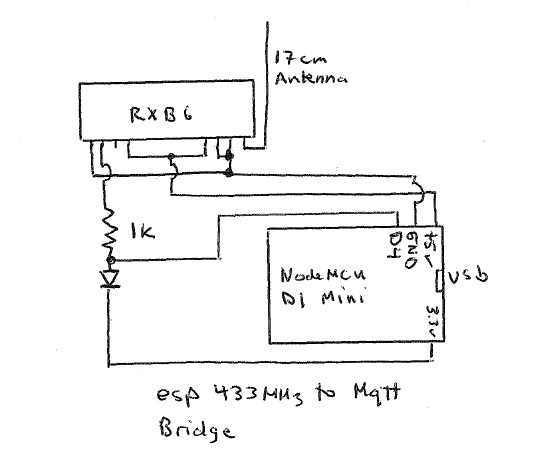 17cm
Antenna
RXB6
1K
D4
GND
+5v
NodeMCU
D1 Mini
USB
3.3v
esp 433MHz to Mqtt
Bridge